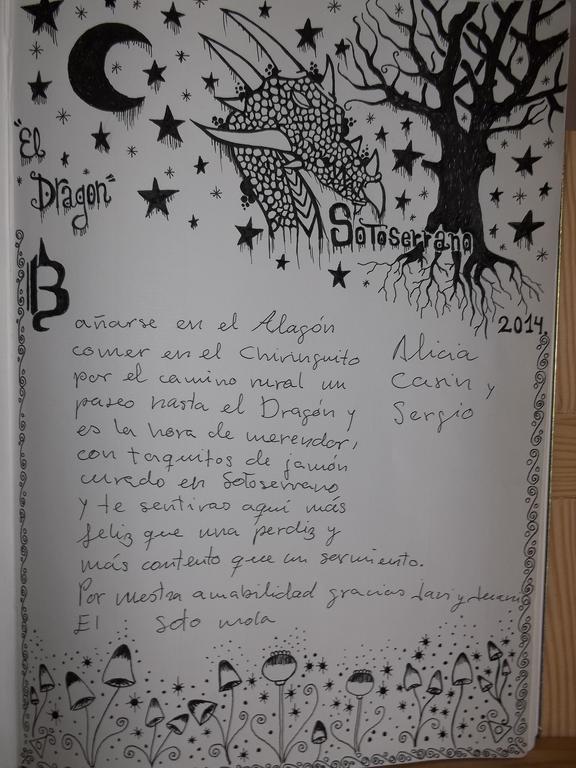 "El
Dragon"
Sotoserrano
2014
Bañarse en el Alagón
comer en el Chiringuito
por el camino rural un
paseo hasta el Dragón y
es la hora de merendar,
con taquitos de jamón
curado en Sotoserrano
y te sentiras aquí más
feliz que una perdiz y
más contento que un sarmiento.
Por vuestra amabilidad gracias Javi y
El Soto mola
Alicia
y
Sergio